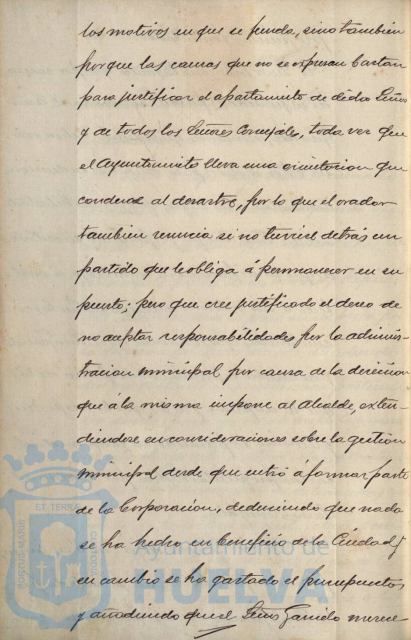 los motivos en que se funda, sino tambien
porque las causas que no se expresan bastan
para justificar el apartamiento de dicho Señor
y de todos los Señores Concejales, toda vez que
el Ayuntamiento lleva una orientacion que
conduce al desastre, por lo que el orador
tambien renuncia si no tuviese detrás un
partido que le obliga á permanecer en su
puesto; pero que cree justificado el deseo de
no aceptar responsabilidades por la adminis-
tracion municipal por causa de la direccion
que á la misma impone el Alcalde, exten-
diendose en consideraciones sobre la gestion
municipal desde que entró á formar parte
de la Corporacion, deduciendo que nada
se ha hecho en beneficio de la Ciudad y
en cambio se ha gastado el presupuesto
y añadiendo que el Señor Garrido merece
Ayuntamiento de
HUELVA
PORTUS MARIS
ET TERRAE
CUSTODIA